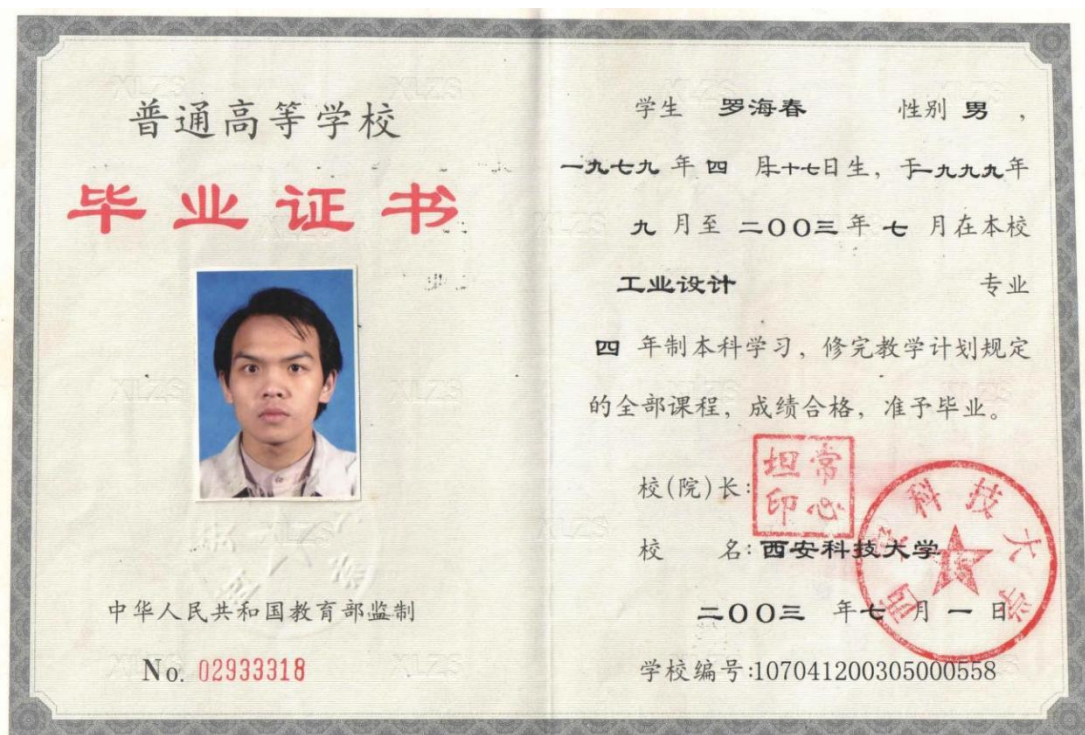 普通高等学校
毕业证书
中华人民共和国教育部监制
No. 02933318
学生 罗海春 性别 男 ，
一九七九 年 四 月十七日生，于一九九九年
九 月至 二〇〇三 年 七 月在本校
工业设计 专业
四 年制本科学习，修完教学计划规定
的全部课程，成绩合格，准予毕业。
校(院)长：
常心坦印
校 名：西安科技大学
西安科技大学
二〇〇三 年 七 月 一 日
学校编号:107041200305000558
XLZS